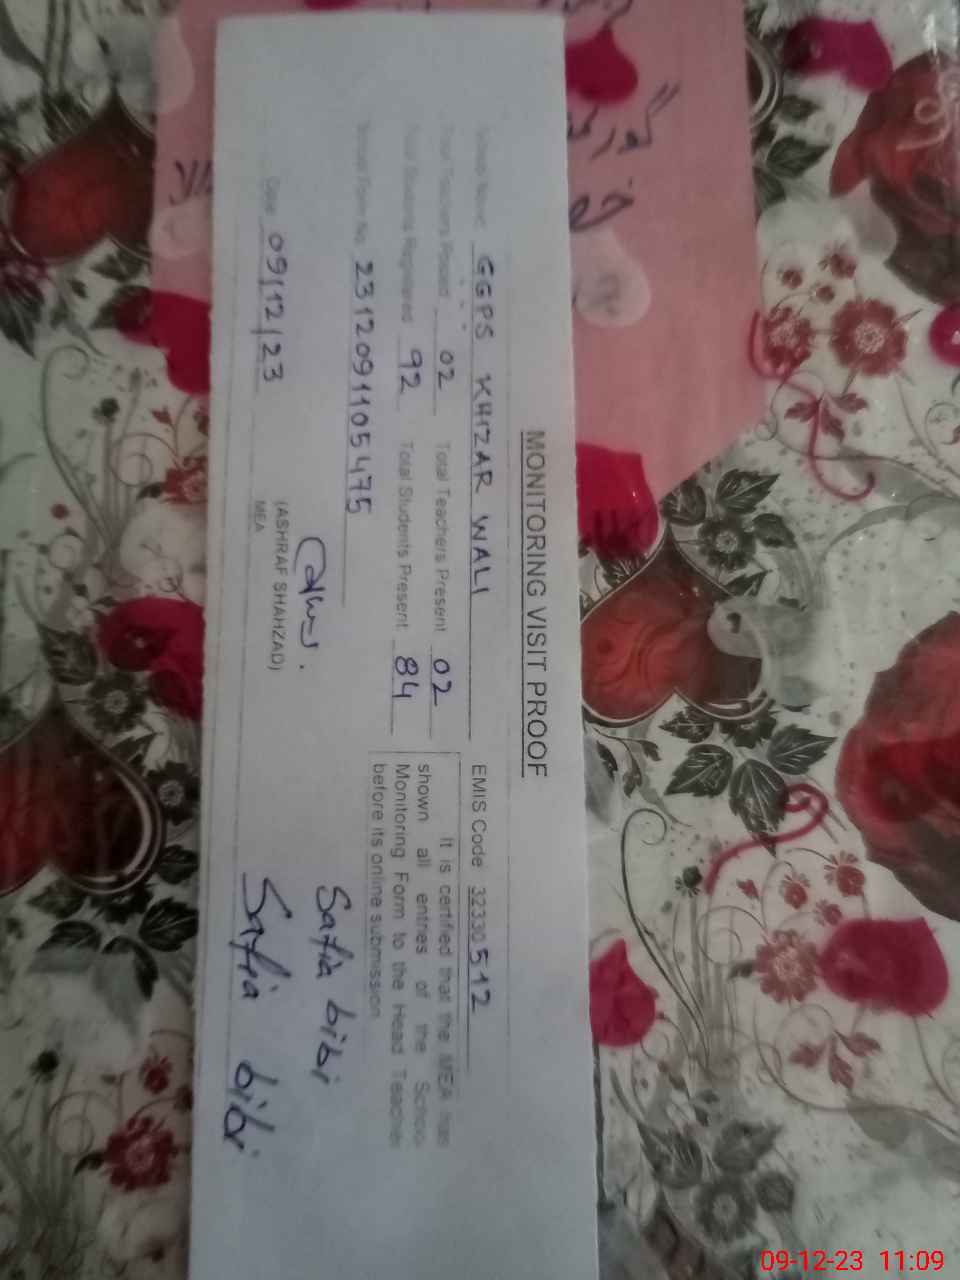 MONITORING VISIT PROOF
School Name: GGPS KHIZAR WALI EMIS Code 32330512
Total Teachers Posted 02 Total Teachers Present 02
Total Students Registered 92 Total Students Present 84
It is certified that the MEA has
shown all entries of the School
Monitoring Form to the Head Teacher
before its online submission.
School Form No. 2312091105475
(ASHRAF SHAHZAD)
MEA
Date: 09/12/23
Safia bibi
Safia bibi
09-12-23 11:09